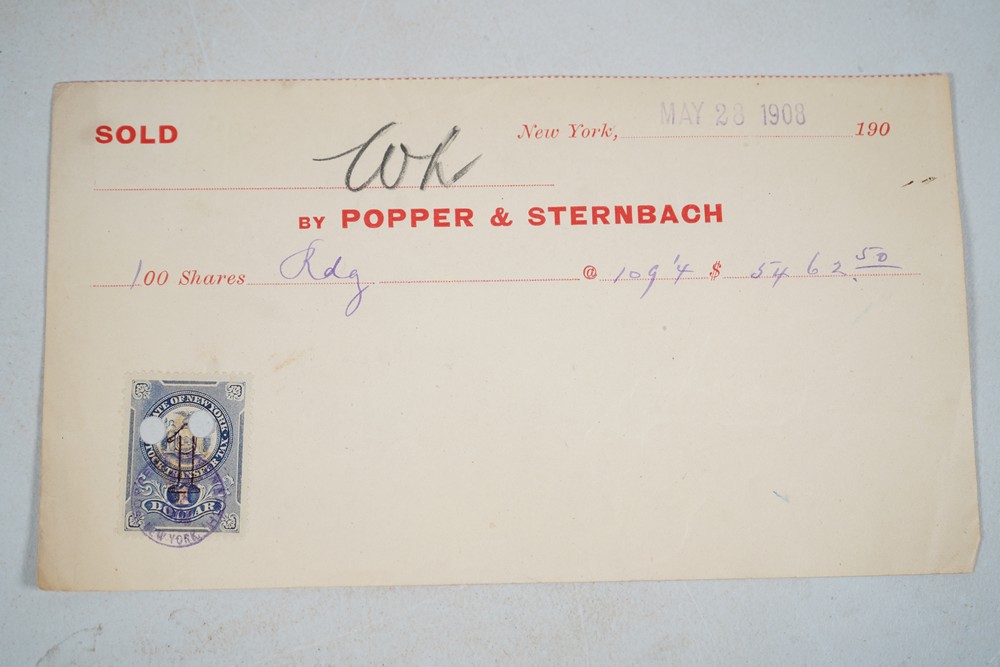 SOLD
New York, MAY 28 1908 190
BY POPPER & STERNBACH
100 Shares Rdg @ 109 1/4 $ 5462.50
STATE OF NEW YORK
STOCK TRANSFER TAX
1
DOLLAR
NEW YORK